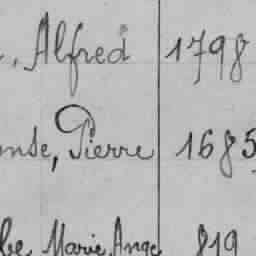 Alfred 1798
Pierre 1685
Marie Ange 819